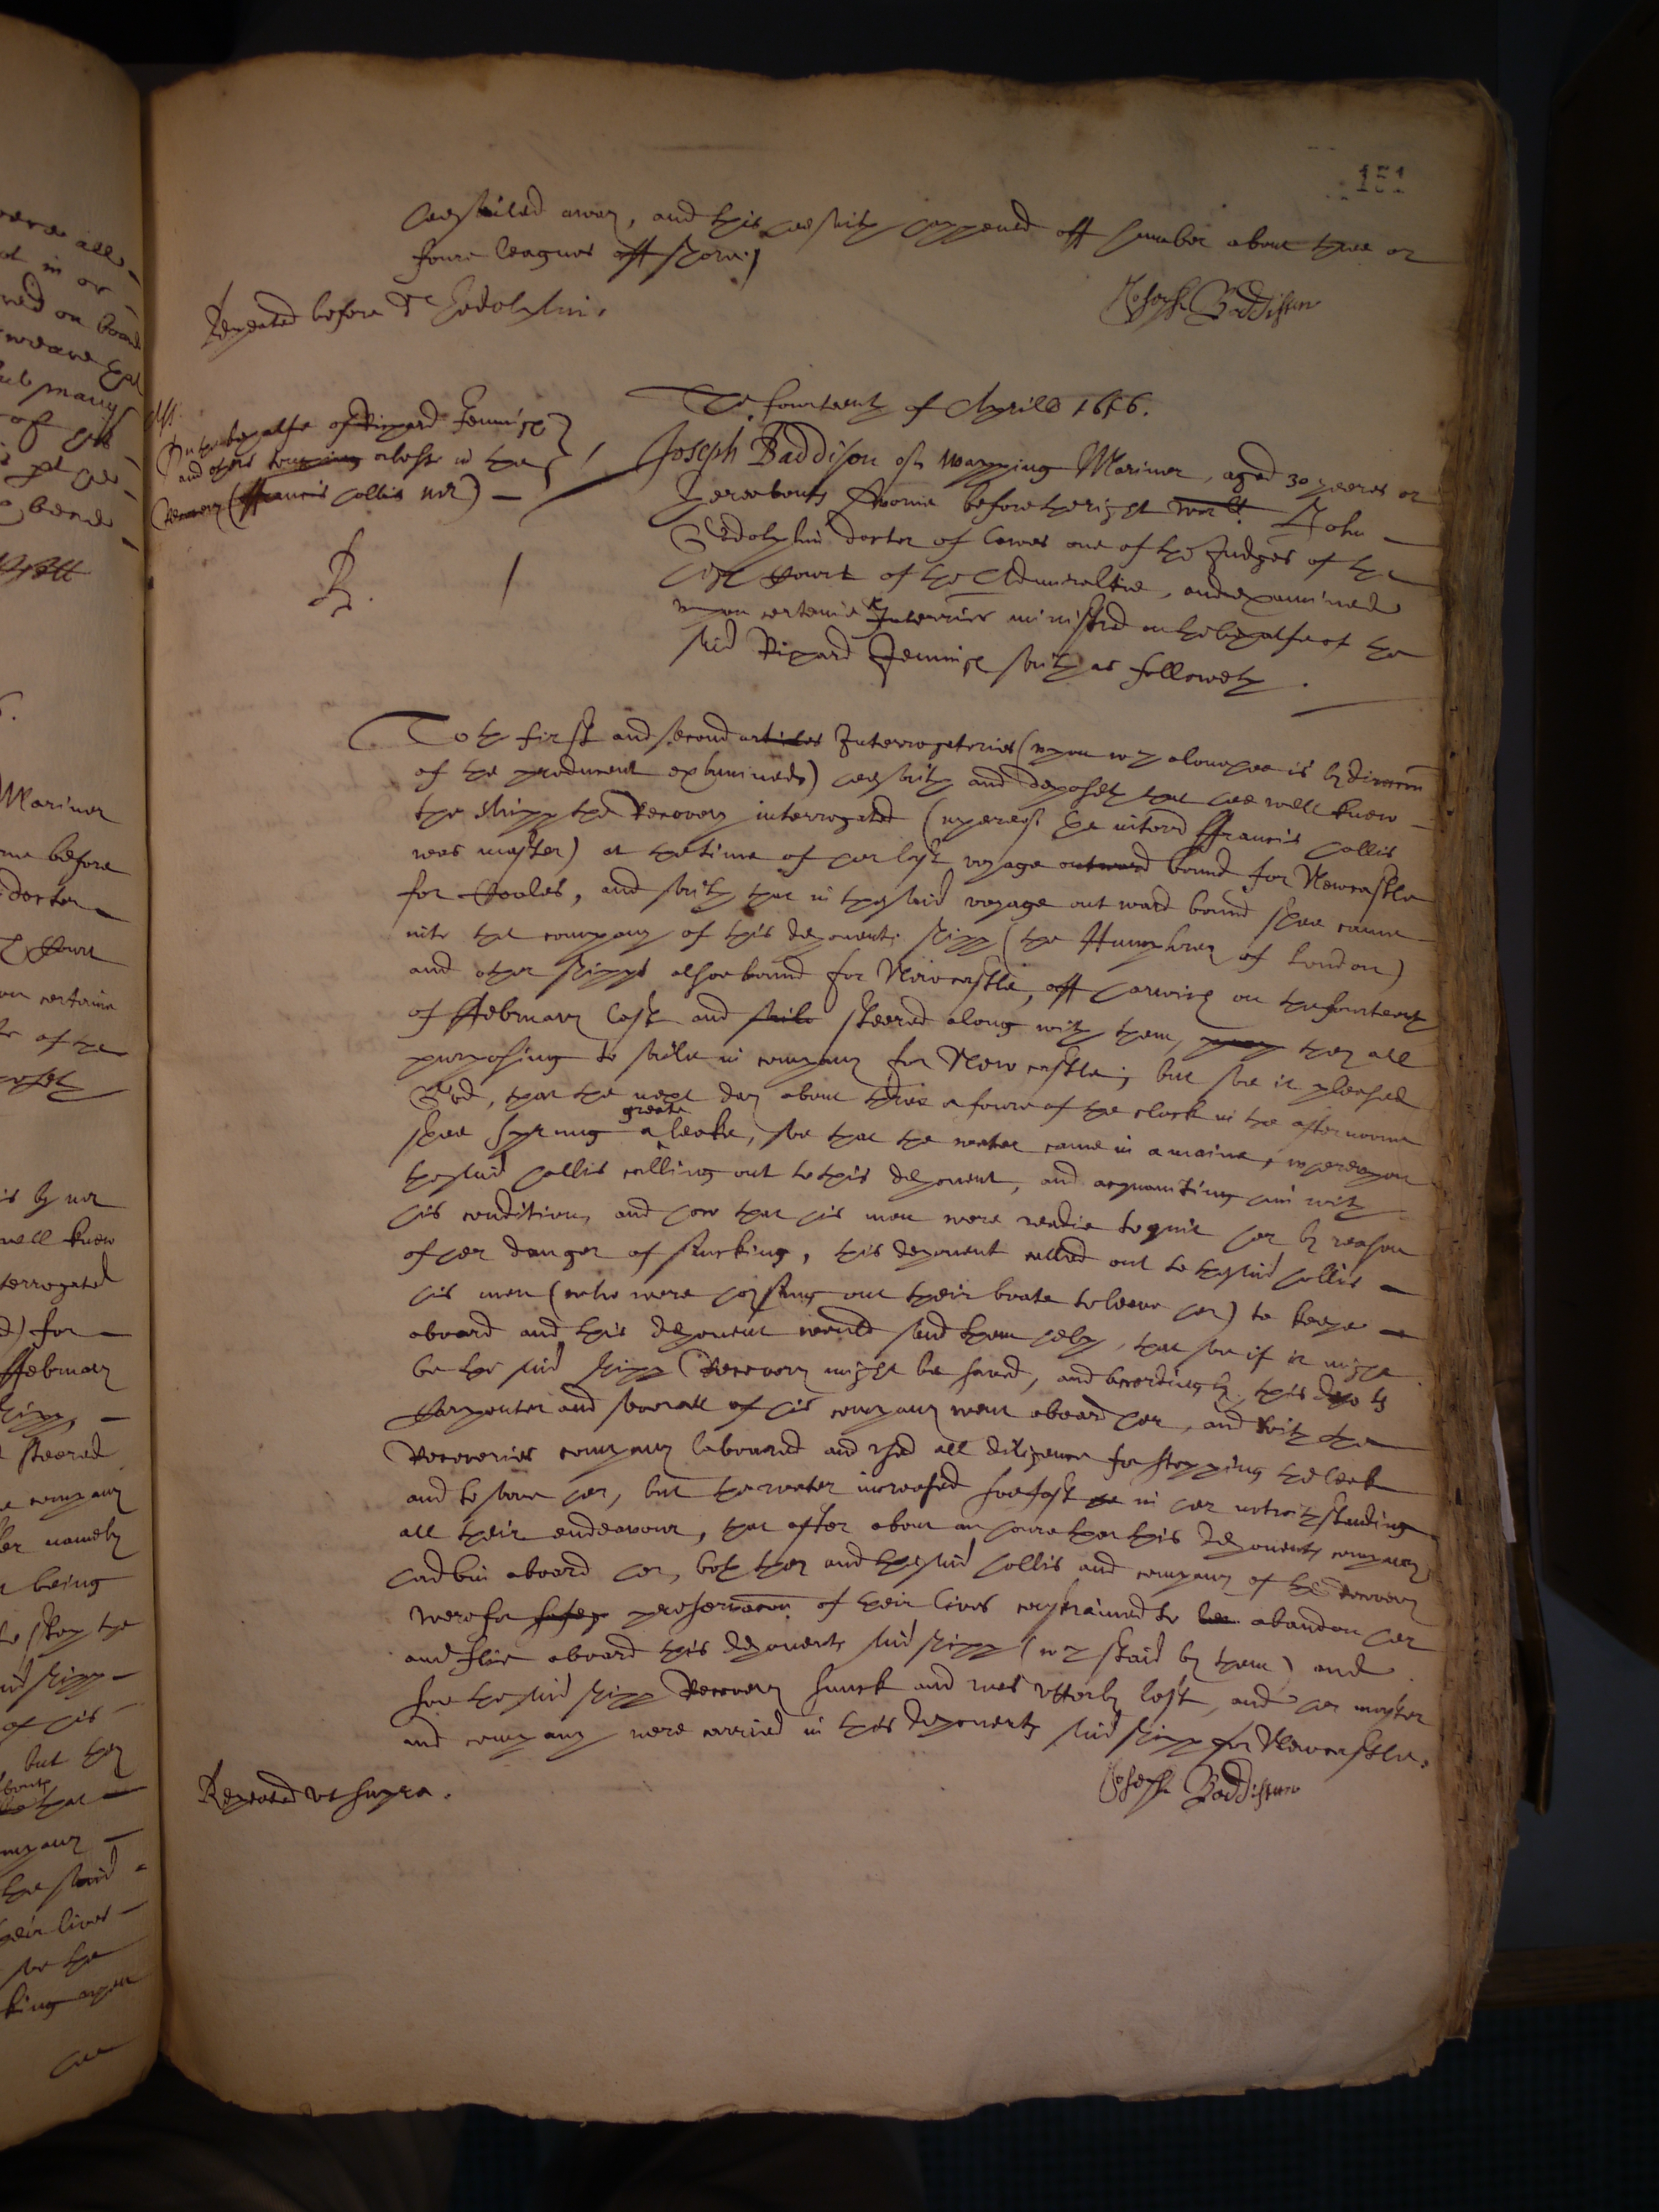 151
hee sailed away, and this hee saith happened off humber about three or
foure leagues off shore./
Repeated before dr Godolphin.
Joseph Baddison
The fourteenth of Aprill 1656.
On the behalfe of Richard Jennish
and others touching a losse in the
Recovery (ffrancis Collis mr) -
Joseph Baddison of Wapping Mariner, aged 30 yeeres or
thereabouts sworne before the right worll John
Godolphin doctor of lawes one of the Judges of the
high Court of the Admiraltie, and examined
upon certaine Interries ministred on the behalfe of the
said Richard Jennish saith as followeth.
R.
To the first and second articles Interrogatories (upon wch alone hee is by direccon
of the producent examined) hee saith and deposeth that hee well knew
the shipp the Recovery interrogated (whereof the interrd ffrancis Collis
was master) at the time of her last voyage outward bound for Newcastle
for Coales, and saith that in the said voyage outward bound shee came
into the company of this deponents shipp (the Humphrey of London)
and other shipps alsoe bound for Newcastle, off harwich on the fourteenth
of ffebruary last and saile steered along with them, they all
purposing to saile in company for New castle; but soe it pleased
God, that the next day about three or foure of the clock in the afternoone
shee sprung a greate leake, soe that the water came in amaine, whereupon
the said Collis calling out to this deponent, and acquainting him with
his condition, and how that his men were readie to quit her by reason
of her danger of suncking, this deponent called out to the said Collis
his men (who were hoysing out their boate to leave her) to keepe
aboard and this deponent would send them help, that soe if it might
be the said shipp Recovery might be saved, and accordingly this depots
Carpenter and severall of his company went aboard her, and with the
Recoveries company laboured and used all diligence for stopping the leak
and to save her, but the water increased soe fast in her notwithstanding
all their endeavour, that after about an houre that this deponents company
had bin aboard her, both they and the said Collis and company of the Recovery
were for safety preservacon of their lives constrained to abandon her
and flie aboard this deponents said shipp (wch staid by them) and
soe the said shipp Recovery sunck and was utterly lost, and her master
and company were carried in this deponents said shipp for Newcastle.
Repeated ut supra.
Joseph Baddison